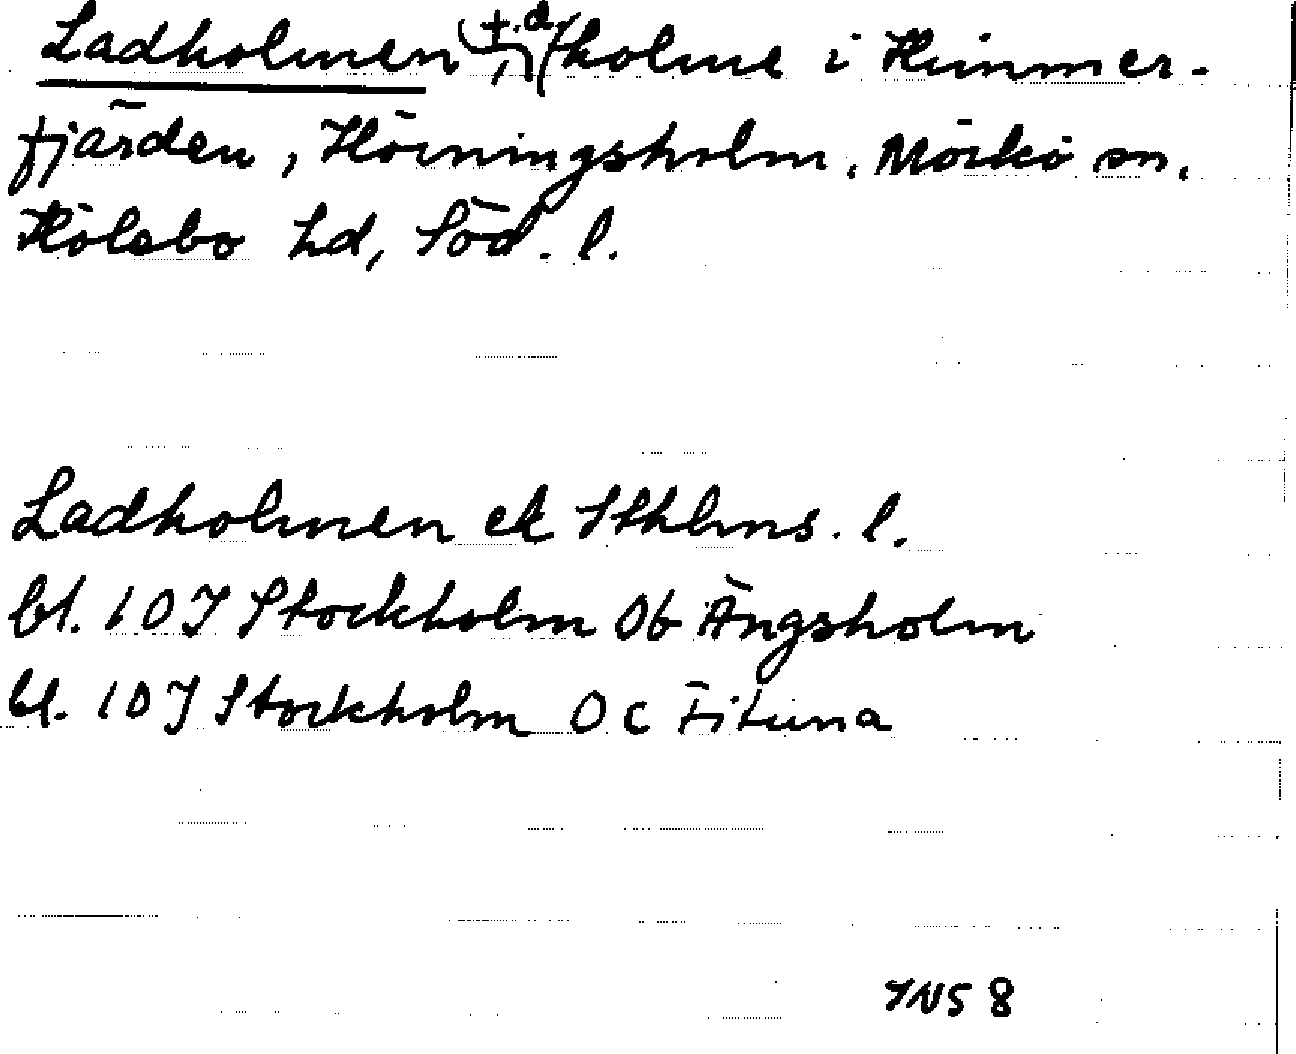 Ladholmen, holme i Himmer-
fjärden, Hörningsholm, Mörkö sn,
Hölebo hd, Söd. l.
Ladholmen ek Sthlms. l.
bl. 10 I Stockholm 0b Ängsholm
bl. 10 I Stockholm 0c Fituna
YNS 8